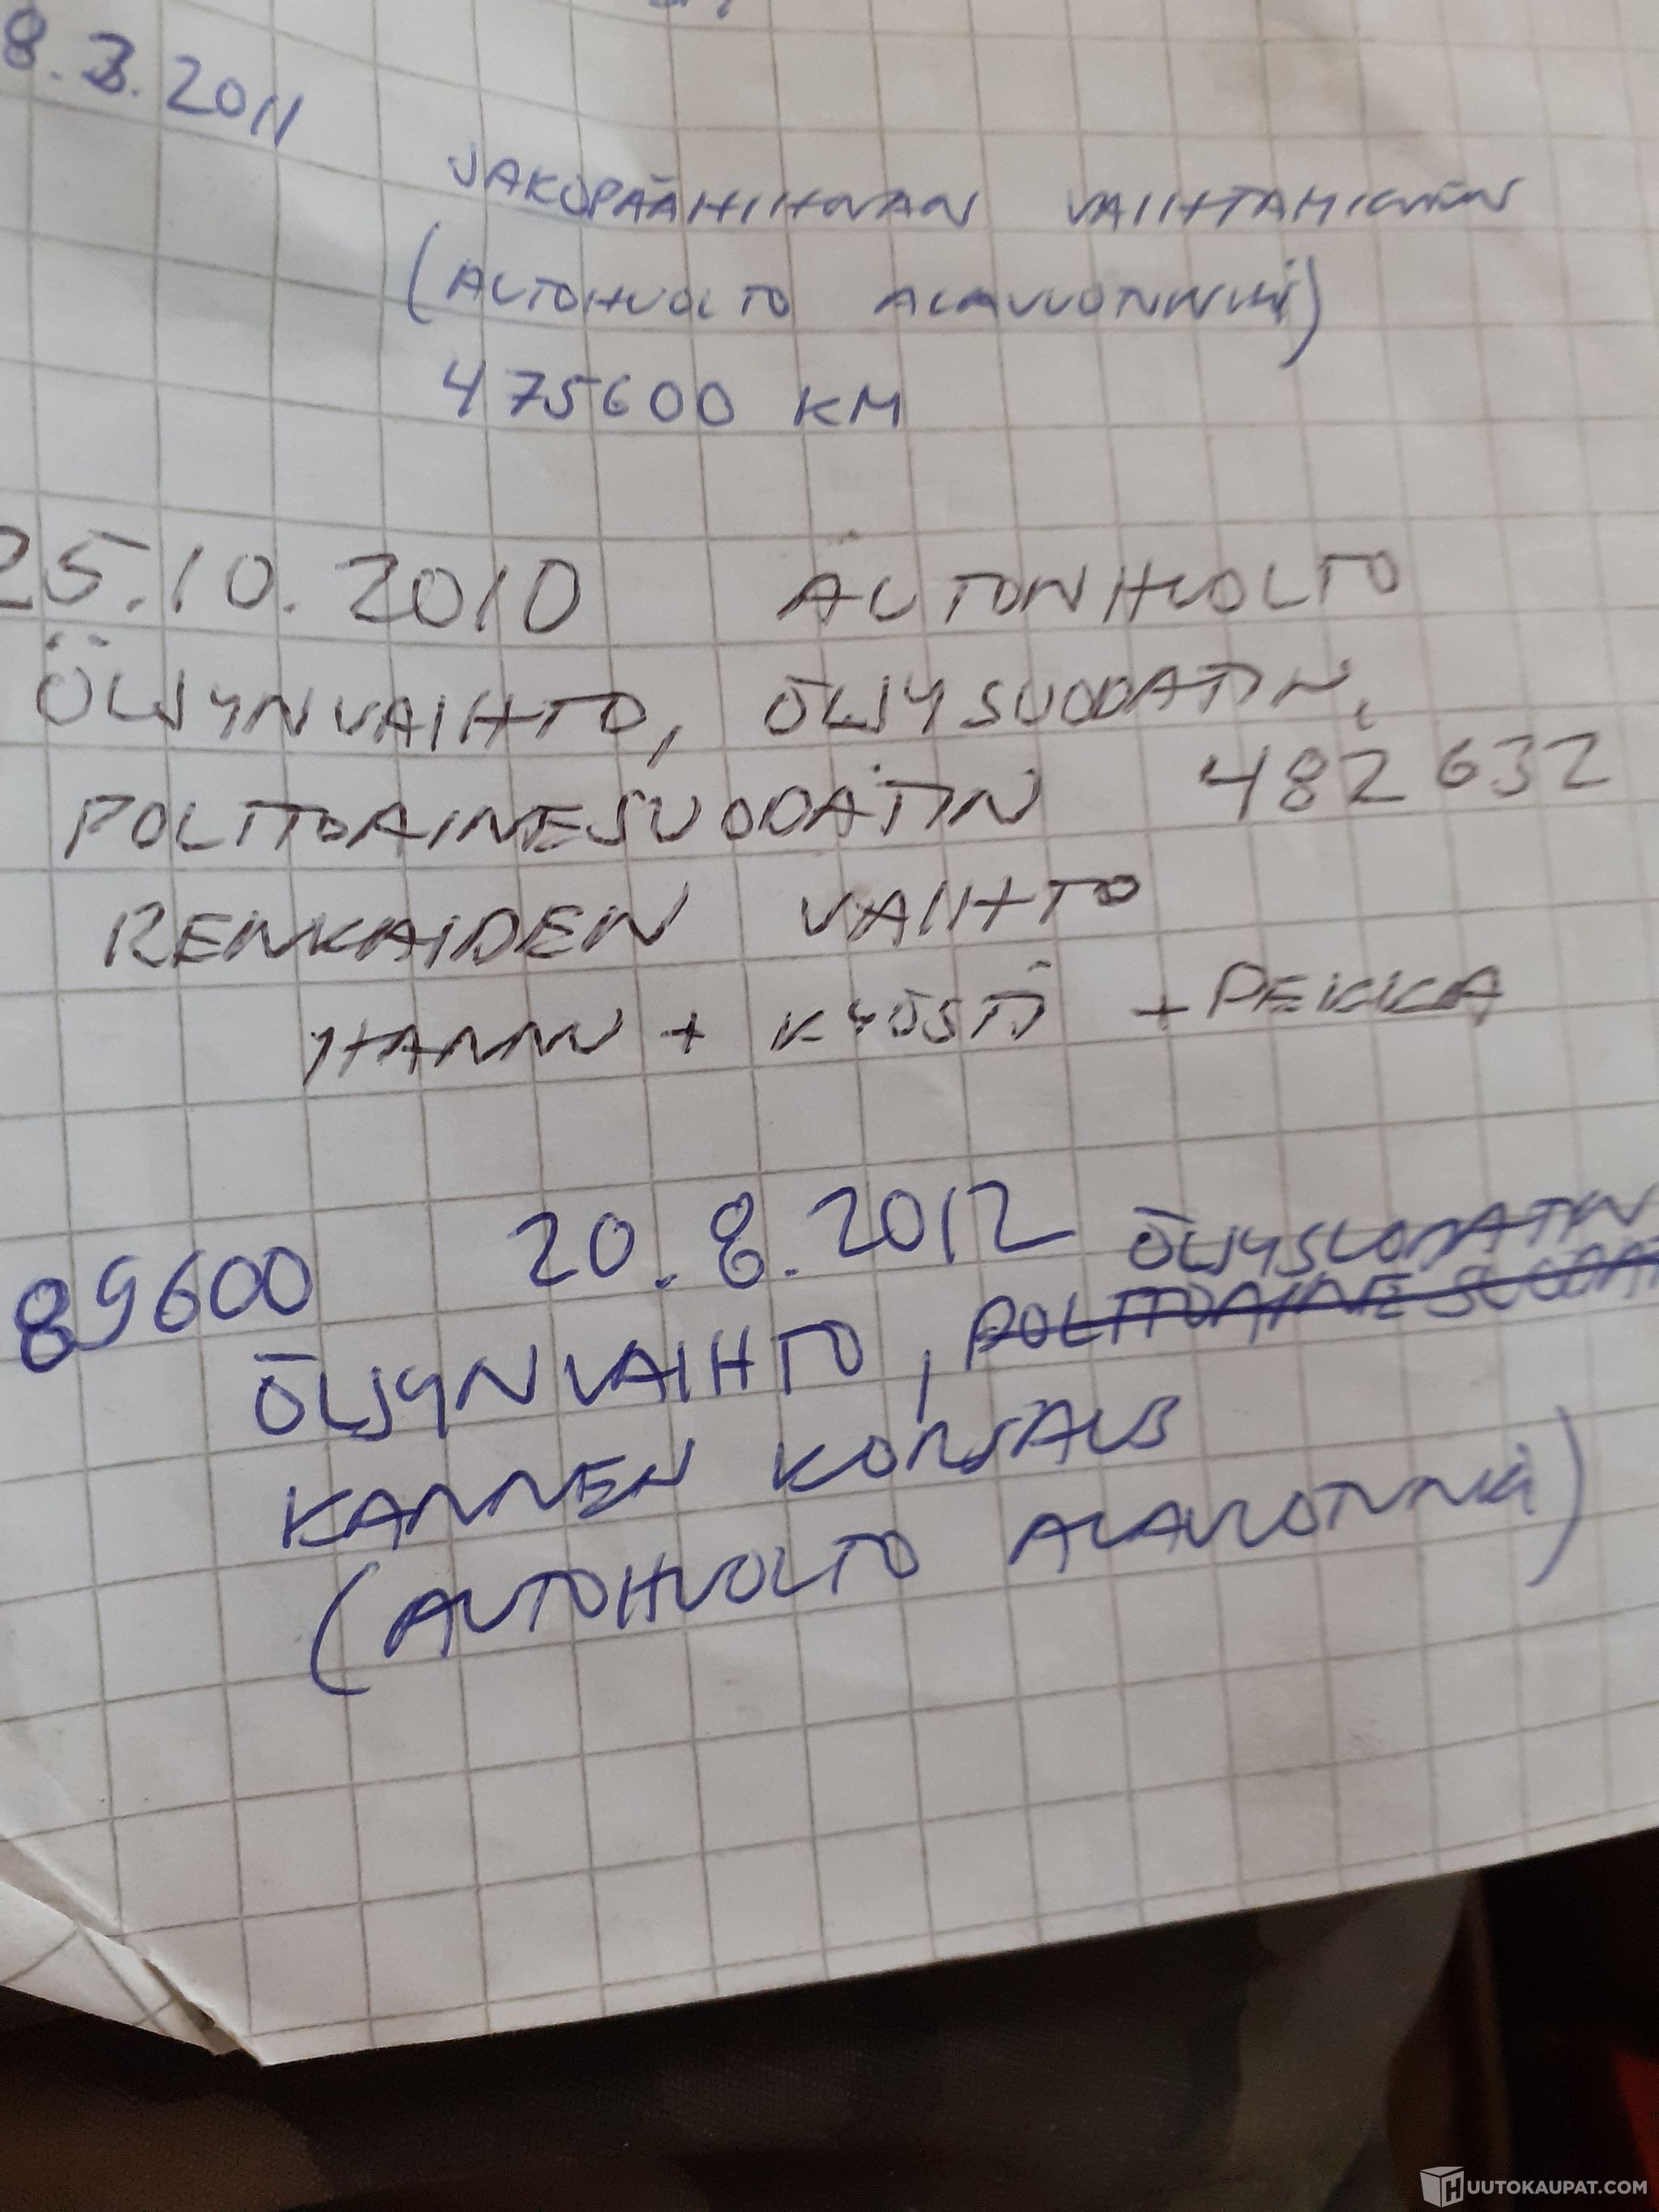 8.3.2011
JAKOPÄÄHIHNAN VAIHTAMINEN
(AUTOHUOLTO ALAVUOTUNKI)
475600 KM
25.10.2010 AUTONHUOLTO
ÖLJYNVAIHTO, ÖLJYSUODATIN,
POLTTOAINESUODATIN 482 632
RENKAIDEN VAIHTO
HANNU + KYÖSTI + PEKKA
89600 20.8.2012 ÖLJYSUODATIN
ÖLJYNVAIHTO, POLTTOAINESUODAT
KANNEN KORJAUS
(AUTOHUOLTO ALAVUOTUNKI)
HUUTOKAUPAT.COM